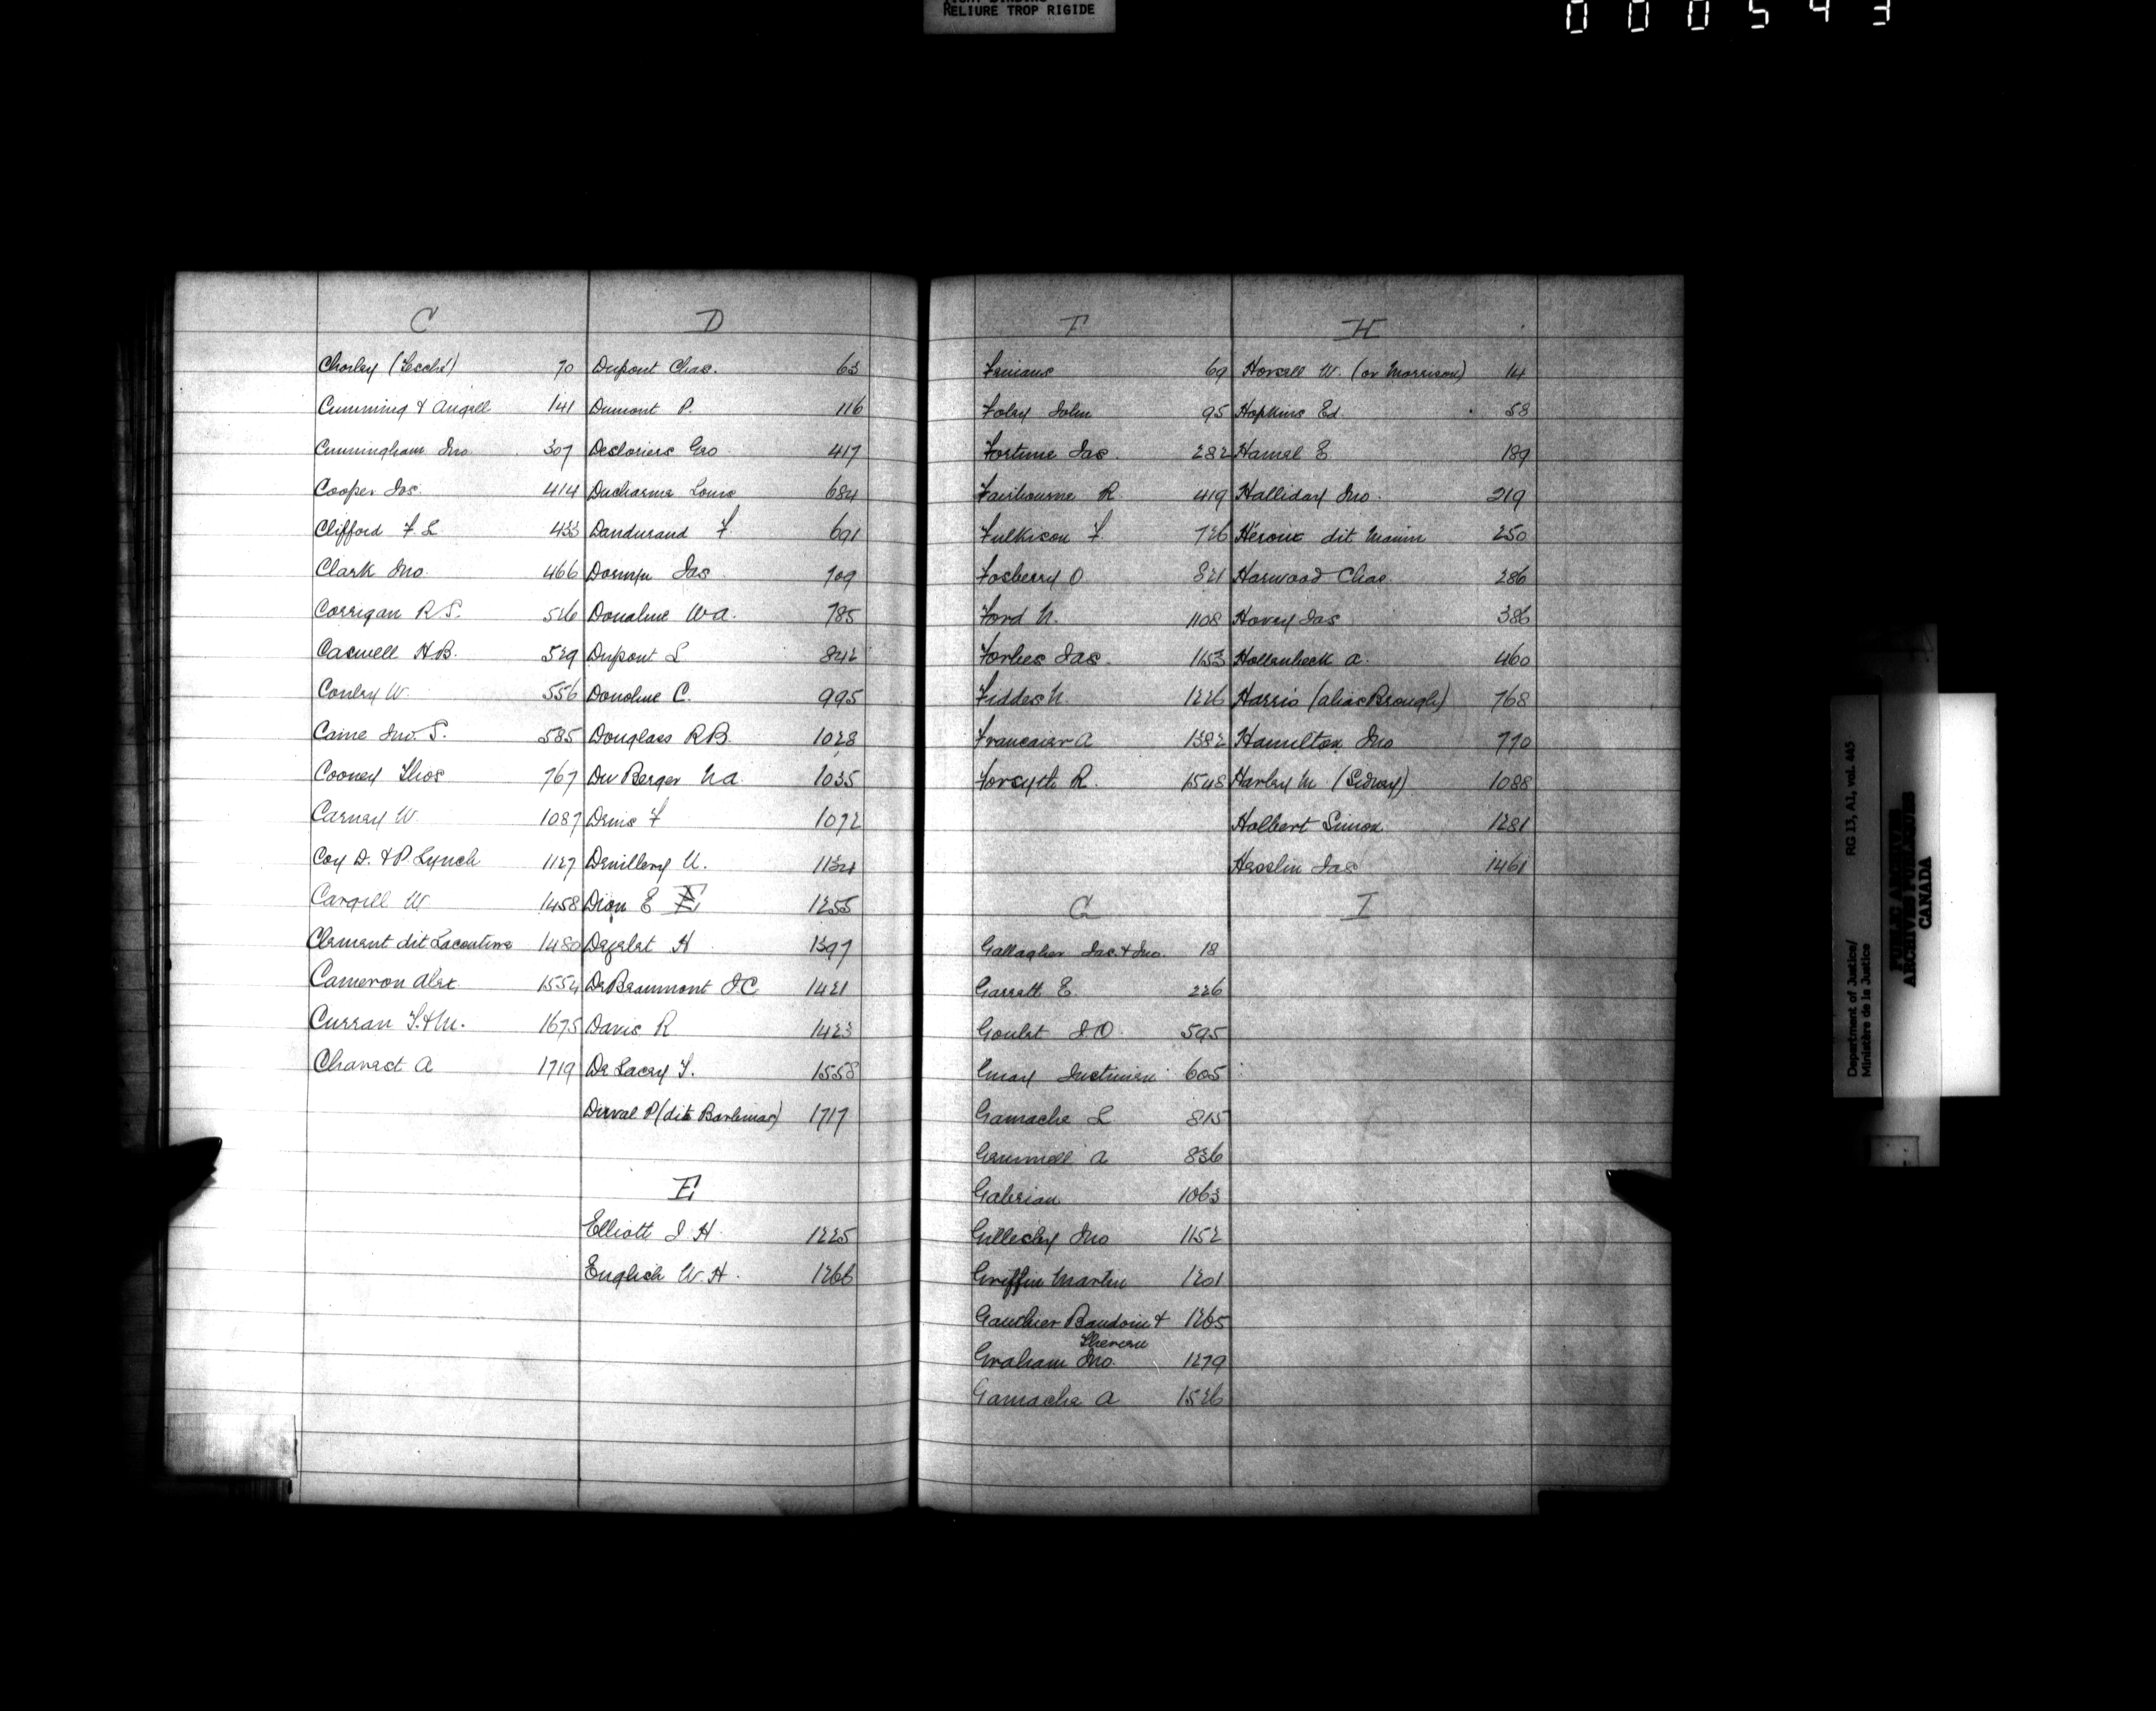 RELIURE TROP RIGIDE
000543
C
Chorley
70
Cumming & Angell 141
Cunningham Jno 307
Cooper Jas. 414
Clifford F. L. 433
Clark Jno. 466
Corrigan R S. 526
Caswell H.B. 529
Conley W. 556
Caine Jno. S. 585
Cooney Thos 767
Carney W 1087
Coy D. & P. Lynch 1127
Cargill W 1458
Clement dit Lacouture 1480
Cameron Alex 1554
Curran T. & M. 1675
Charest A 1719
D
Dupont Chas. 63
Dumont P. 116
Desloriers Geo 417
Ducharme Louis 684
Dandurand F. 691
Jas 709
Donahue W A. 785
Dupont L 842
Donohue C. 995
Douglass R B. 1028
Du Berger N A. 1035
Denis F 1072
1134
Dion E 1255
H 1397
De Beaumont J C 1421
Davis R 1423
De Lacey T. 1558
Durval P (dit 1717
E
Elliott J. H. 1225
English W. H. 1266
F
Fenians 69
Foley John 95
Fortune Jas. 282
Fairbourne R. 419
Fulkison F. 726
Fosberry O 821
Ford N. 1108
Forbes Jas. 1153
Fiddes N. 1226
A 1382
Forsyth R. 1548
G
Gallagher Jas. & Jno. 18
Garratt E. 226
Goulet J O. 595
605
Gamache L 815
A 836
Galerian 1063
Gillesby Jno 1152
Griffin Martin 1201
Gauthier Baudoin & 1265
Graham Jno. 1279
Gamache A 1526
H
Horsell W. (or Morrison) 14
Hopkins Ed. 58
Hamel E 189
Halliday Jno. 219
Héroux dit 250
Harwood Chas. 286
Hovey Jas 386
Hollenbeck A. 460
Harris (alias Brough) 768
Hamilton Jno 770
Harley M (Sidney) 1088
Holbert Simon 1281
Heselin Jas 1461
I
Department of Justice/
Ministère de la Justice
RG 13, A1, vol. 445
PUBLIC ARCHIVES
ARCHIVES PUBLIQUES
CANADA